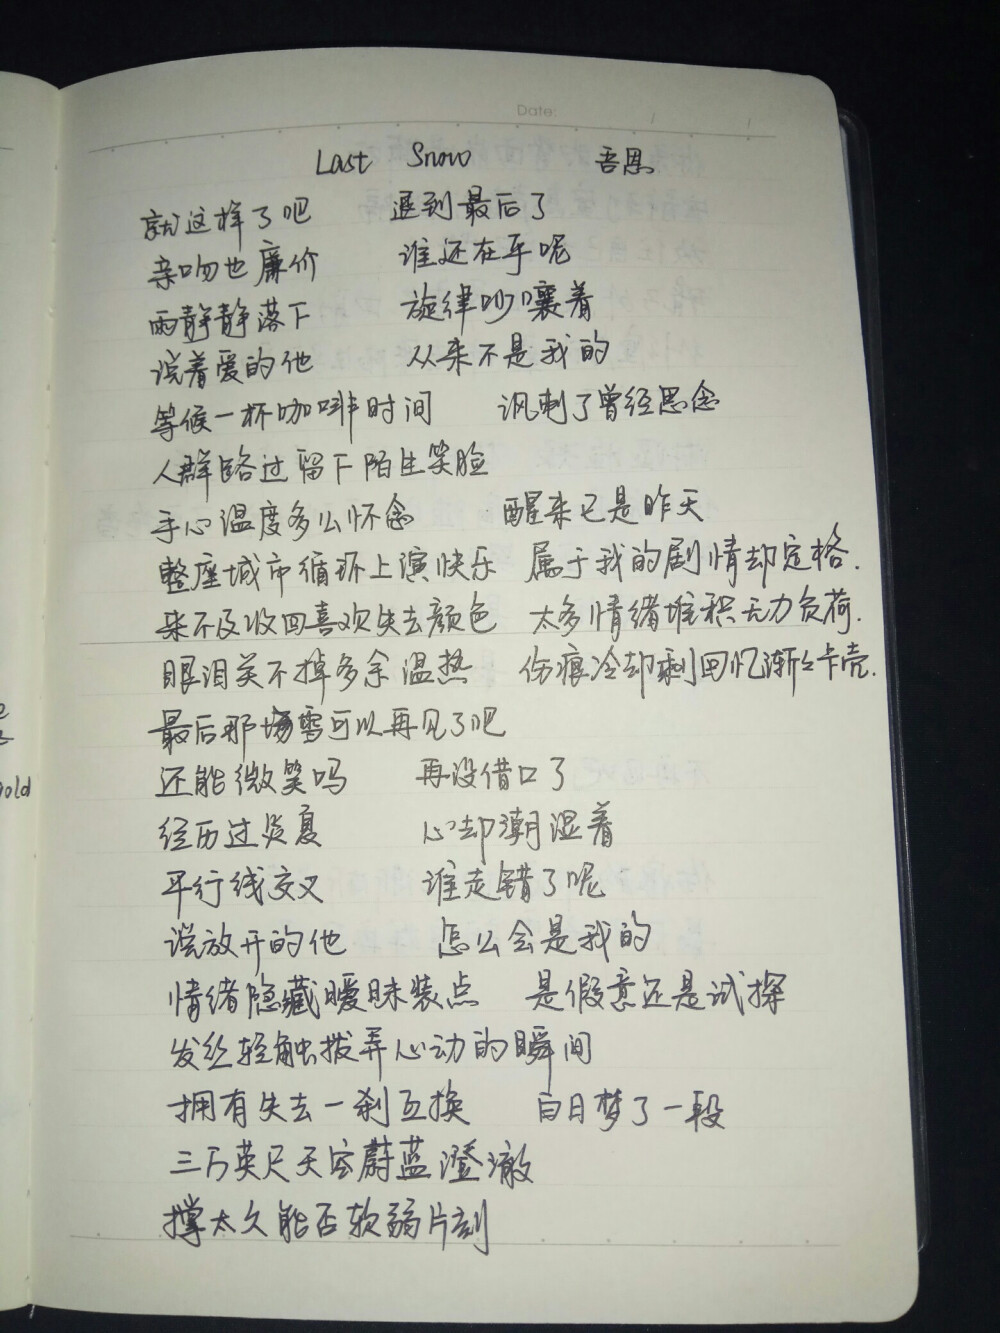 Date:
Last Snow 吾恩
就这样了吧 退到最后了
亲吻也廉价 谁还在乎呢
雨静静落下 旋律吵嚷着
说着爱的他 从来不是我的
等候一杯咖啡时间 讽刺了曾经思念
人群路过留下陌生笑脸
手心温度多么怀念 醒来已是昨天
整座城市循环上演快乐 属于我的剧情却定格.
来不及收回喜欢失去颜色 太多情绪堆积无力负荷.
眼泪关不掉多余温热 伤痕冷却剩回忆渐渐卡壳.
最后那场雪可以再见了吧
还能微笑吗 再没借口了
经历过炎夏 心却潮湿着
平行线交叉 谁走错了呢
说放开的他 怎么会是我的
情绪隐藏暧昧装点 是假意还是试探
发丝轻触拨弄心动的瞬间
拥有失去一刹互换 白日梦了一段
三万英尺天空蔚蓝澄澈
撑太久能否软弱片刻
old